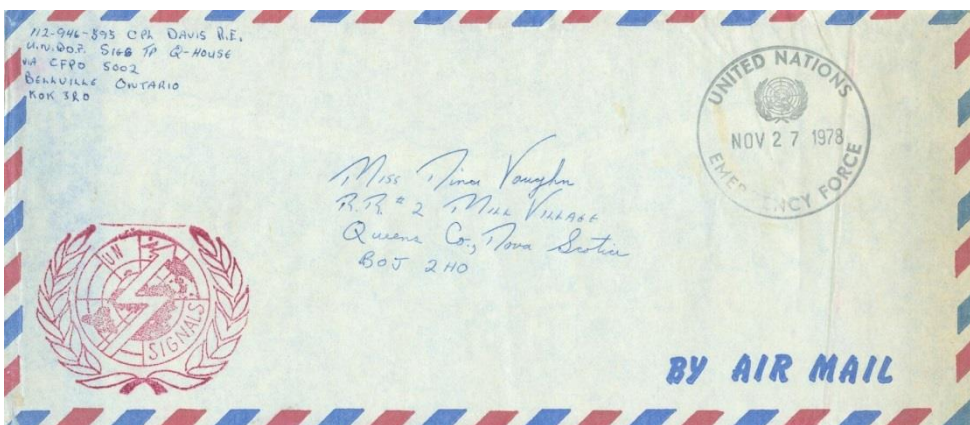 112-946-895 CPL DAVIS R.E.
U.N.D.O.F. SIGS TP Q-HOUSE
VIA CFPO 5002
BELLVILLE ONTARIO
K0K 3R0
UNITED NATIONS
NOV 27 1978
EMERGENCY FORCE
Miss Tina Vaughn
R.R. # 2 MILL VILLAGE
Queens Co., Nova Scotia
B0J 2H0
UN
SIGNALS
BY AIR MAIL